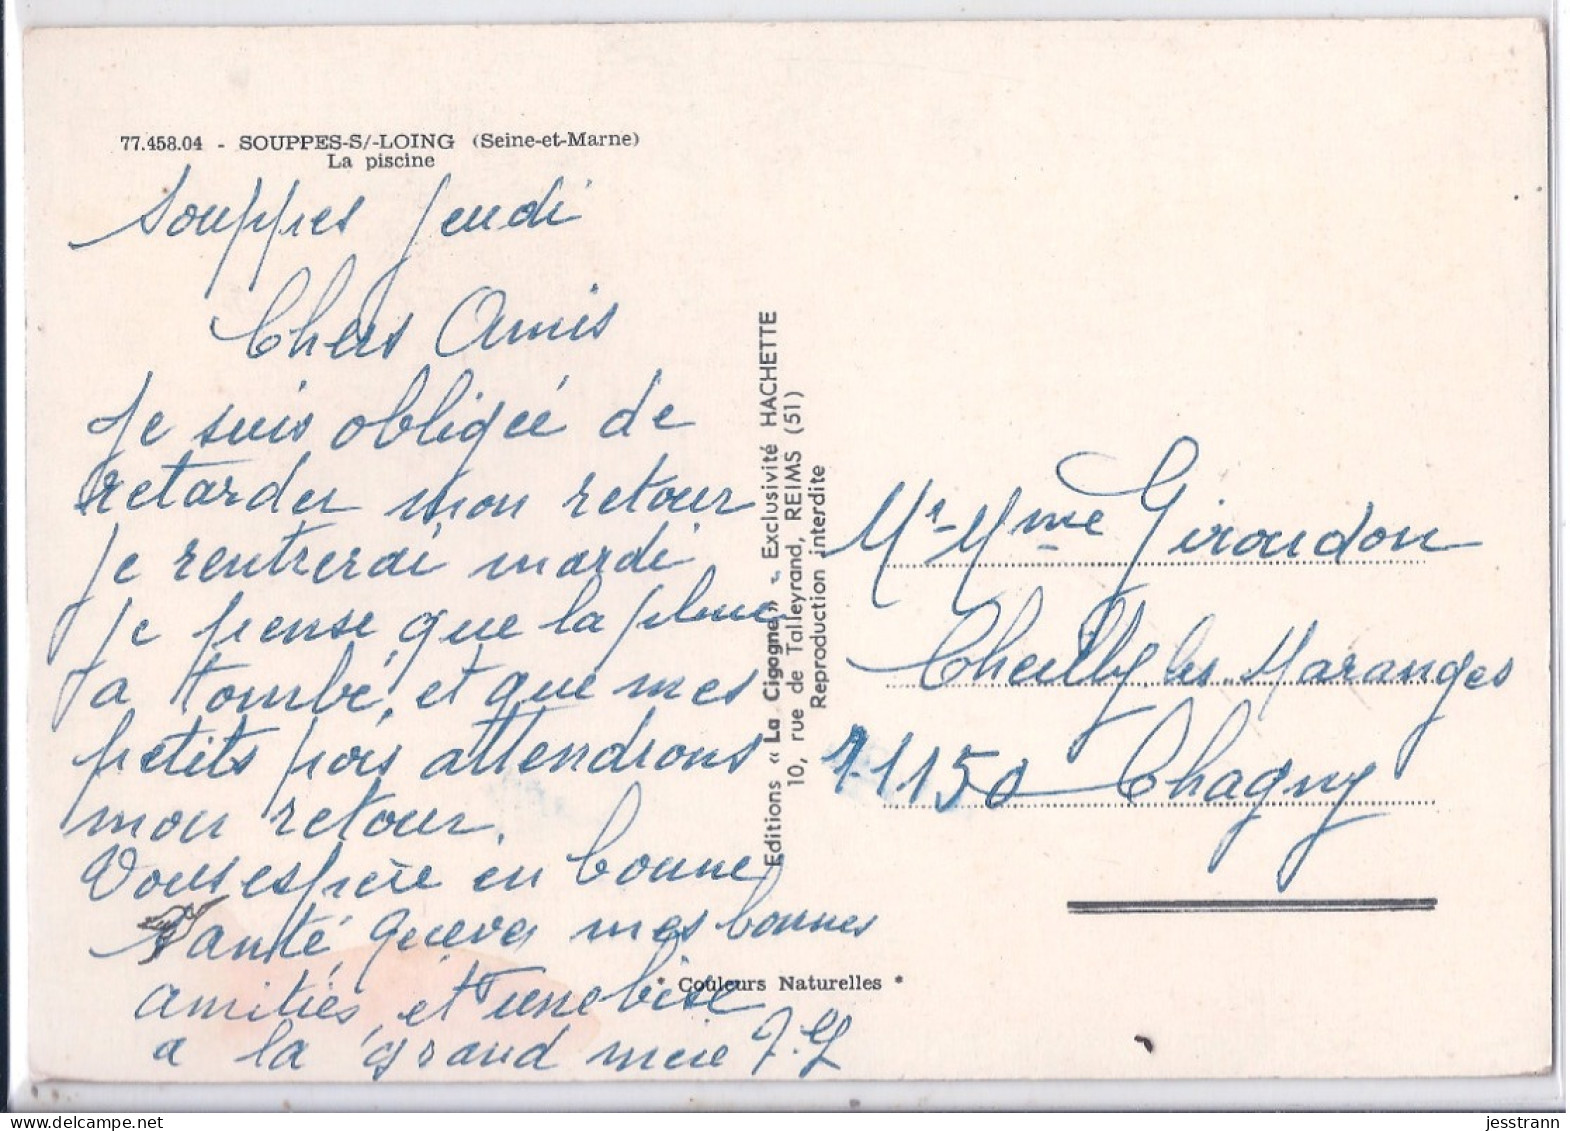 77.458.04 - SOUPPES-S/-LOING (Seine-et-Marne)
La piscine
Souppes Jeudi
Chers Amis
Je suis obligée de
retarder mon retour
Je rentrerai mardi
Je pense que la pluie
a tombé, et que mes
petits pois attendrons
mon retour.
Vous espère en bonne
santé mes bonnes
amitiés et une bise
a la grand mère J.G
Editions « La Cigogne » - Exclusivité HACHETTE
10, rue de Talleyrand, REIMS (51)
Reproduction interdite
* Couleurs Naturelles *
Mr-Mme Giraudon
Cheilly les Maranges
71150 Chagny
jesstrann